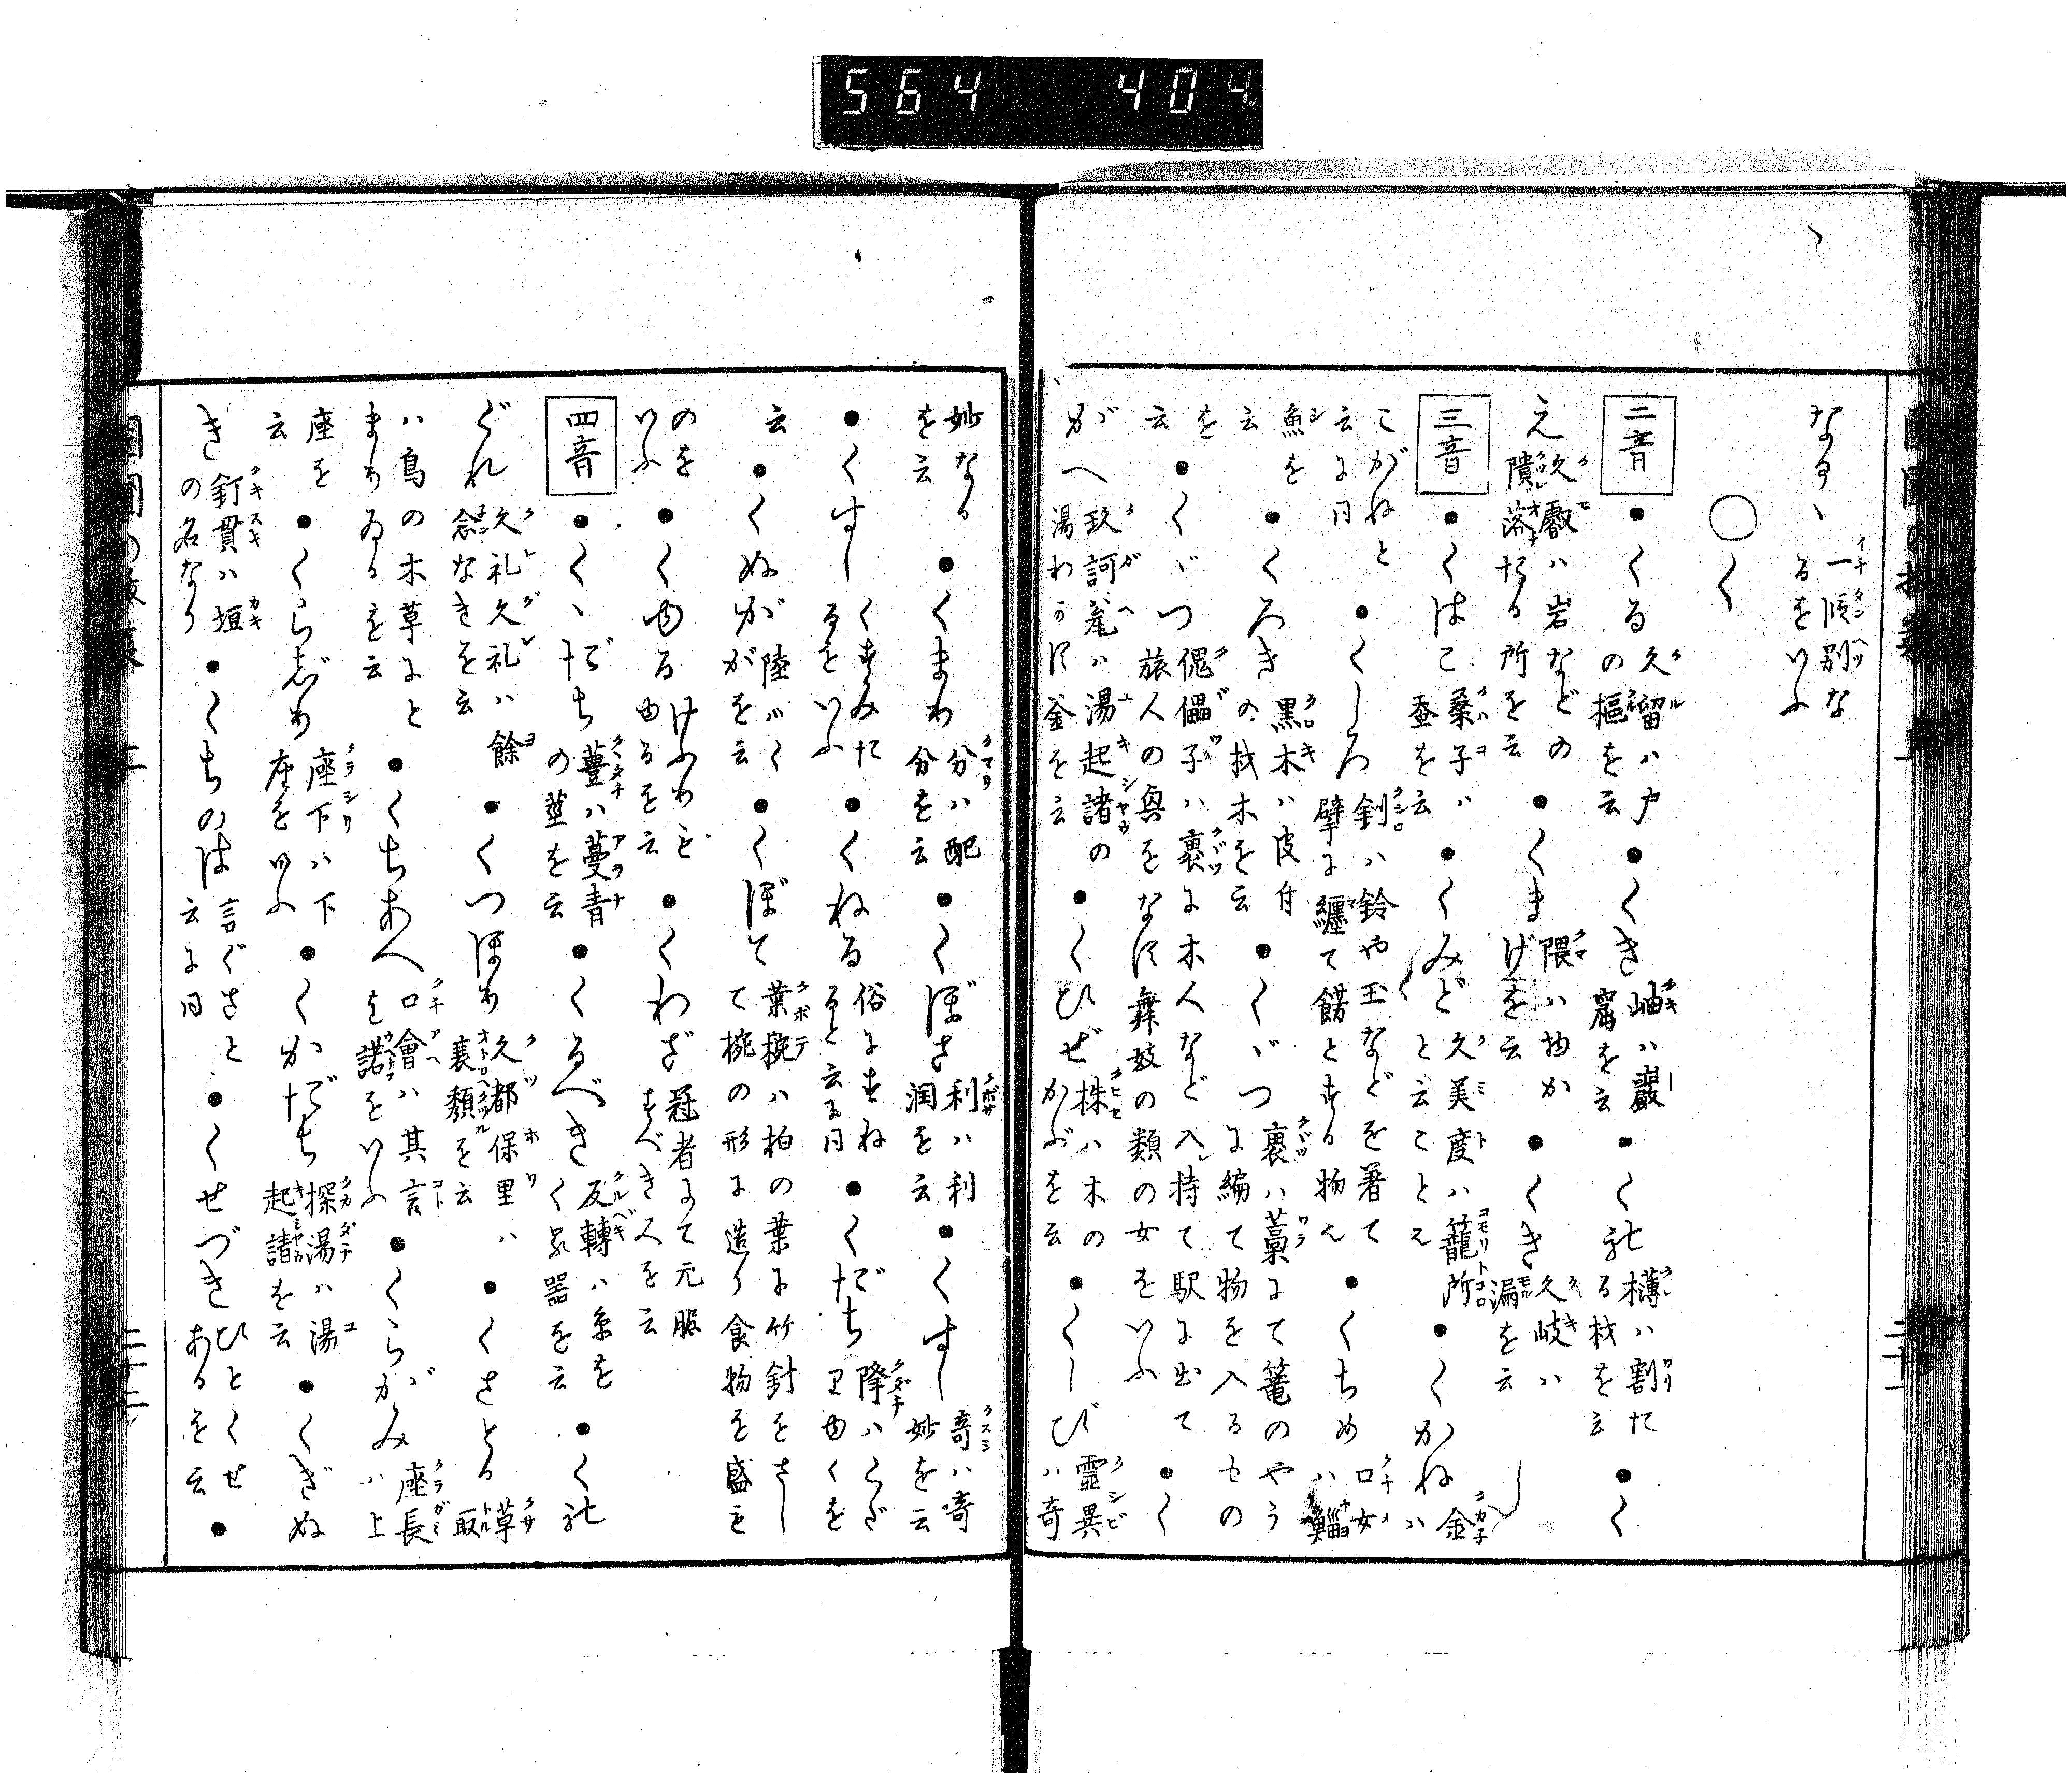 564 404
なるゝ 一段別な
るをいふ
○く
二音 ●くる 久留ハ戸
の樞を云 ●くき 岫ハ巖
窟を云 ●くれ 榑ハ割た
る材を云 ●く
え 久叡ハ岩などの
隤落たる所を云 ●くま 隈ハ物か
げを云 ●くき 久岐ハ
漏を云
三音 ●くはこ 桑子ハ
蚕を云 ●くみど 久美度ハ籠所
と云ことこ ●くかね 金ハ
こがねと
云に同 ●くしろ 釧ハ鈴や玉などを着て
臂に纏て餝とする物え ●くちめ 口女
ハ鯔
魚を
云 ●くろき 黒木ハ皮付
の材木を云 ●くゞつ 裹ハ藁にて篭のやう
に編て物を入るもの
を
云 ●くゞつ 傀儡子ハ裹に木人など入持て駅に出て
旅人の興をなす舞妓の類の女をいふ ●く
がへ 玖訶瓮ハ湯起請の
湯わかす釜を云 ●くひぜ 株ハ木の
かぶを云 ●くしび 霊異
ハ奇
妙なる
を云 ●くまり 分ハ配
分を云 ●くぼさ 利ハ利
潤を云 ●くすし 奇ハ奇
妙を云
●くすし くすみた
るをいふ ●くねる 俗にすね
ると云に同 ●くだち 降ハくだ
りゆくを
云 ●くぬが 陸ハく
がを云 ●くぼて 葉椀ハ柏の葉に竹針をさし
て椀の形に造り食物を盛も
のを
いふ ●くゆる けふりも
ゆるを云 ●くわざ 冠者にて元服
すべき人を云
四音 ●くゝだち 薹ハ蔓青
の莖を云 ●くるべき 反轉ハ糸を
く器を云 ●くれ
ぐれ 久礼久礼ハ餘
念なきを云 ●くつほり 久都保里ハ
衰頽を云 ●くさとる 草
取
ハ鳥の木草にと
まりゐるを云 ●くちあへ 口會ハ其言
を諾をいふ ●くらがみ 座長
ハ上
座を
云 ●くらじり 座下ハ下
座をいふ ●くかだち 探湯ハ湯
起請を云 ●くぎぬ
き 釘貫ハ垣
の名なり ●くちのは 言ぐさと
云に同 ●くせづき ひとくせ
あるを云 ●